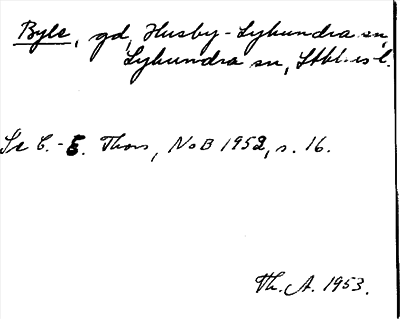 Byle, gd, Husby-Lyhundra sn,
Lyhundra sn, Sthl:s l.
Se C.-E. Thors, NoB 1952, s. 16.
Th. A. 1953.